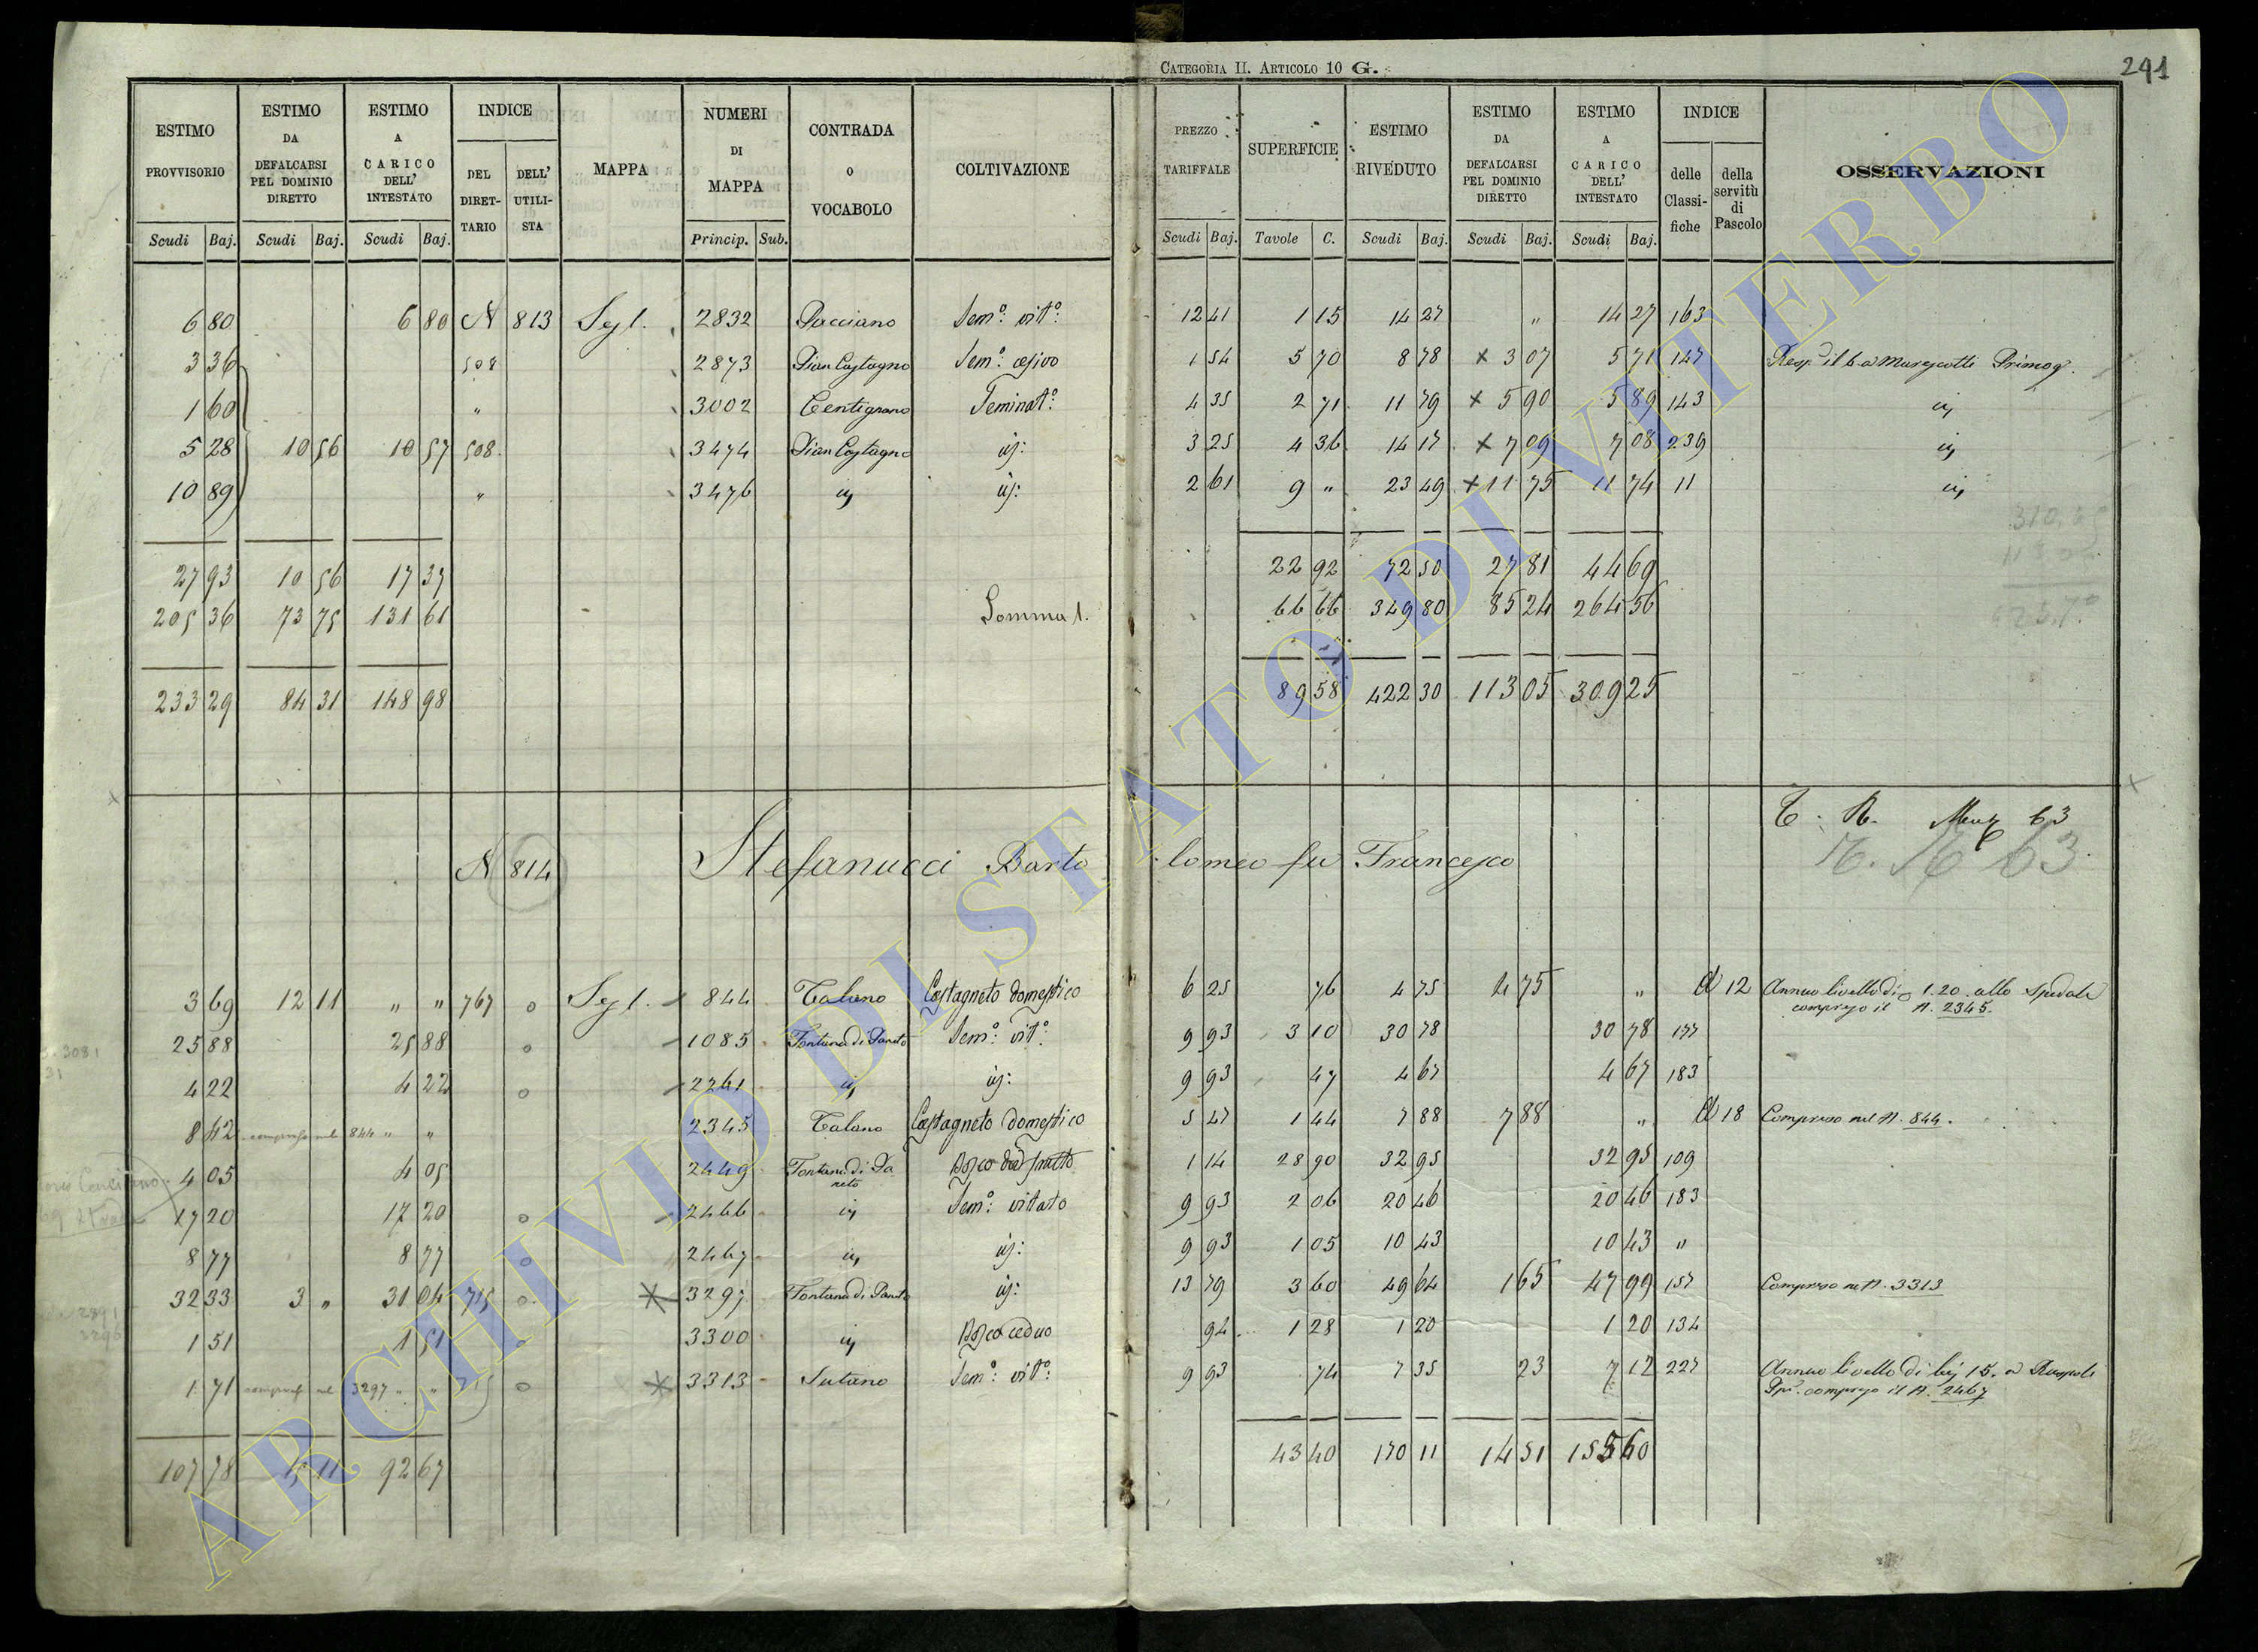 CATEGORIA II. ARTICOLO 10 G.
291
ESTIMO PROVVISORIO | ESTIMO DA DEFALCARSI PEL DOMINIO DIRETTO | ESTIMO A CARICO DELL' INTESTATO | INDICE DEL DIRET-TARIO | DELL' UTILI-STA | MAPPA | NUMERI DI MAPPA | CONTRADA O VOCABOLO | COLTIVAZIONE | PREZZO TARIFFALE | SUPERFICIE | ESTIMO RIVEDUTO | ESTIMO DA DEFALCARSI PEL DOMINIO DIRETTO | ESTIMO A CARICO DELL' INTESTATO | INDICE delle Classi-fiche | della servitù di Pascolo | OSSERVAZIONI
Scudi Baj. | Scudi Baj. | Scudi Baj. | Princip. Sub. | Scudi Baj. | Tavole C. | Scudi Baj. | Scudi Baj. | Scudi Baj.
6 80 | 6 80 | N 813 | Sez I. | 2832 | Pacciano | Sem.º vit.º | 12 41 | 1 15 | 14 27 | " | 14 27 | 163
3 36 | 508 | 2873 | Pian Castagno | Sem.º | 1 54 | 5 70 | 8 78 | × 3 07 | 5 71 | 147 | Marescotti Primog.
1 60 | " | 3002 | Centignano | Seminat.º | 4 35 | 2 71 | 11 79 | × 5 90 | 5 89 | 143 | id
5 28 | 10 56 | 10 57 | 508 | 3474 | Pian Castagno | id: | 3 25 | 4 36 | 14 17 | × 7 09 | 7 08 | 239 | id
10 89 | " | 3476 | id | id: | 2 61 | 9 " | 23 49 | × 11 75 | 11 74 | 11 | id
27 93 | 10 56 | 17 37 | 22 92 | 72 50 | 27 81 | 44 69
205 36 | 73 75 | 131 61 | Somma I. | 66 66 | 349 80 | 85 24 | 264 56
233 29 | 84 31 | 148 98 | 89 58 | 422 30 | 113 05 | 309 25
63
N 814 | Stefanucci Bartolomeo fu Francesco | 63
3 69 | 12 11 | " " | 767 | o | Sez I. | 844 | Talano | Castagneto domestico | 6 25 | 76 | 4 75 | 4 75 | " | 12 | Annuo livello di 1.20. allo Spedale
compreso il N. 2345.
25 88 | 25 88 | o | 1085 | Fontana di Paneto | Sem.º vit.º | 9 93 | 3 10 | 30 78 | 30 78 | 177
4 22 | 4 22 | o | 2261 | id | id: | 9 93 | 47 | 4 67 | 4 67 | 183
8 42 | compreso nel 844 " " | 2345 | Talano | Castagneto domestico | 5 47 | 1 44 | 7 88 | 7 88 | " | 18 | Compreso nel N. 844.
4 05 | 4 05 | 2449 | Fontana di Paneto | Bosco da frutto | 1 14 | 28 90 | 32 95 | 32 95 | 109
17 20 | 17 20 | o | 2466 | id | Sem.º vitato | 9 93 | 2 06 | 20 46 | 20 46 | 183
8 77 | 8 77 | o | 2467 | id | id: | 9 93 | 1 05 | 10 43 | 10 43 | "
32 33 | 3 " | 31 04 | 715 | o | 3297 | Fontana di Paneto | id: | 13 79 | 3 60 | 49 64 | 1 65 | 47 99 | 157 | Compreso nel N. 3313
1 51 | 1 51 | o | 3300 | id | Bosco ceduo | 94 | 1 28 | 1 20 | 1 20 | 134
1 71 | compreso nel 3297 " " | o | 3313 | Sutano | Sem.º vit.º | 9 93 | 74 | 7 35 | 23 | 7 12 | 227 | Annuo livello di baj 15. a Ruspoli
compreso il N. 2467
107 78 | 15 11 | 92 67 | 43 40 | 170 11 | 14 51 | 155 60
ARCHIVIO DI STATO DI VITERBO